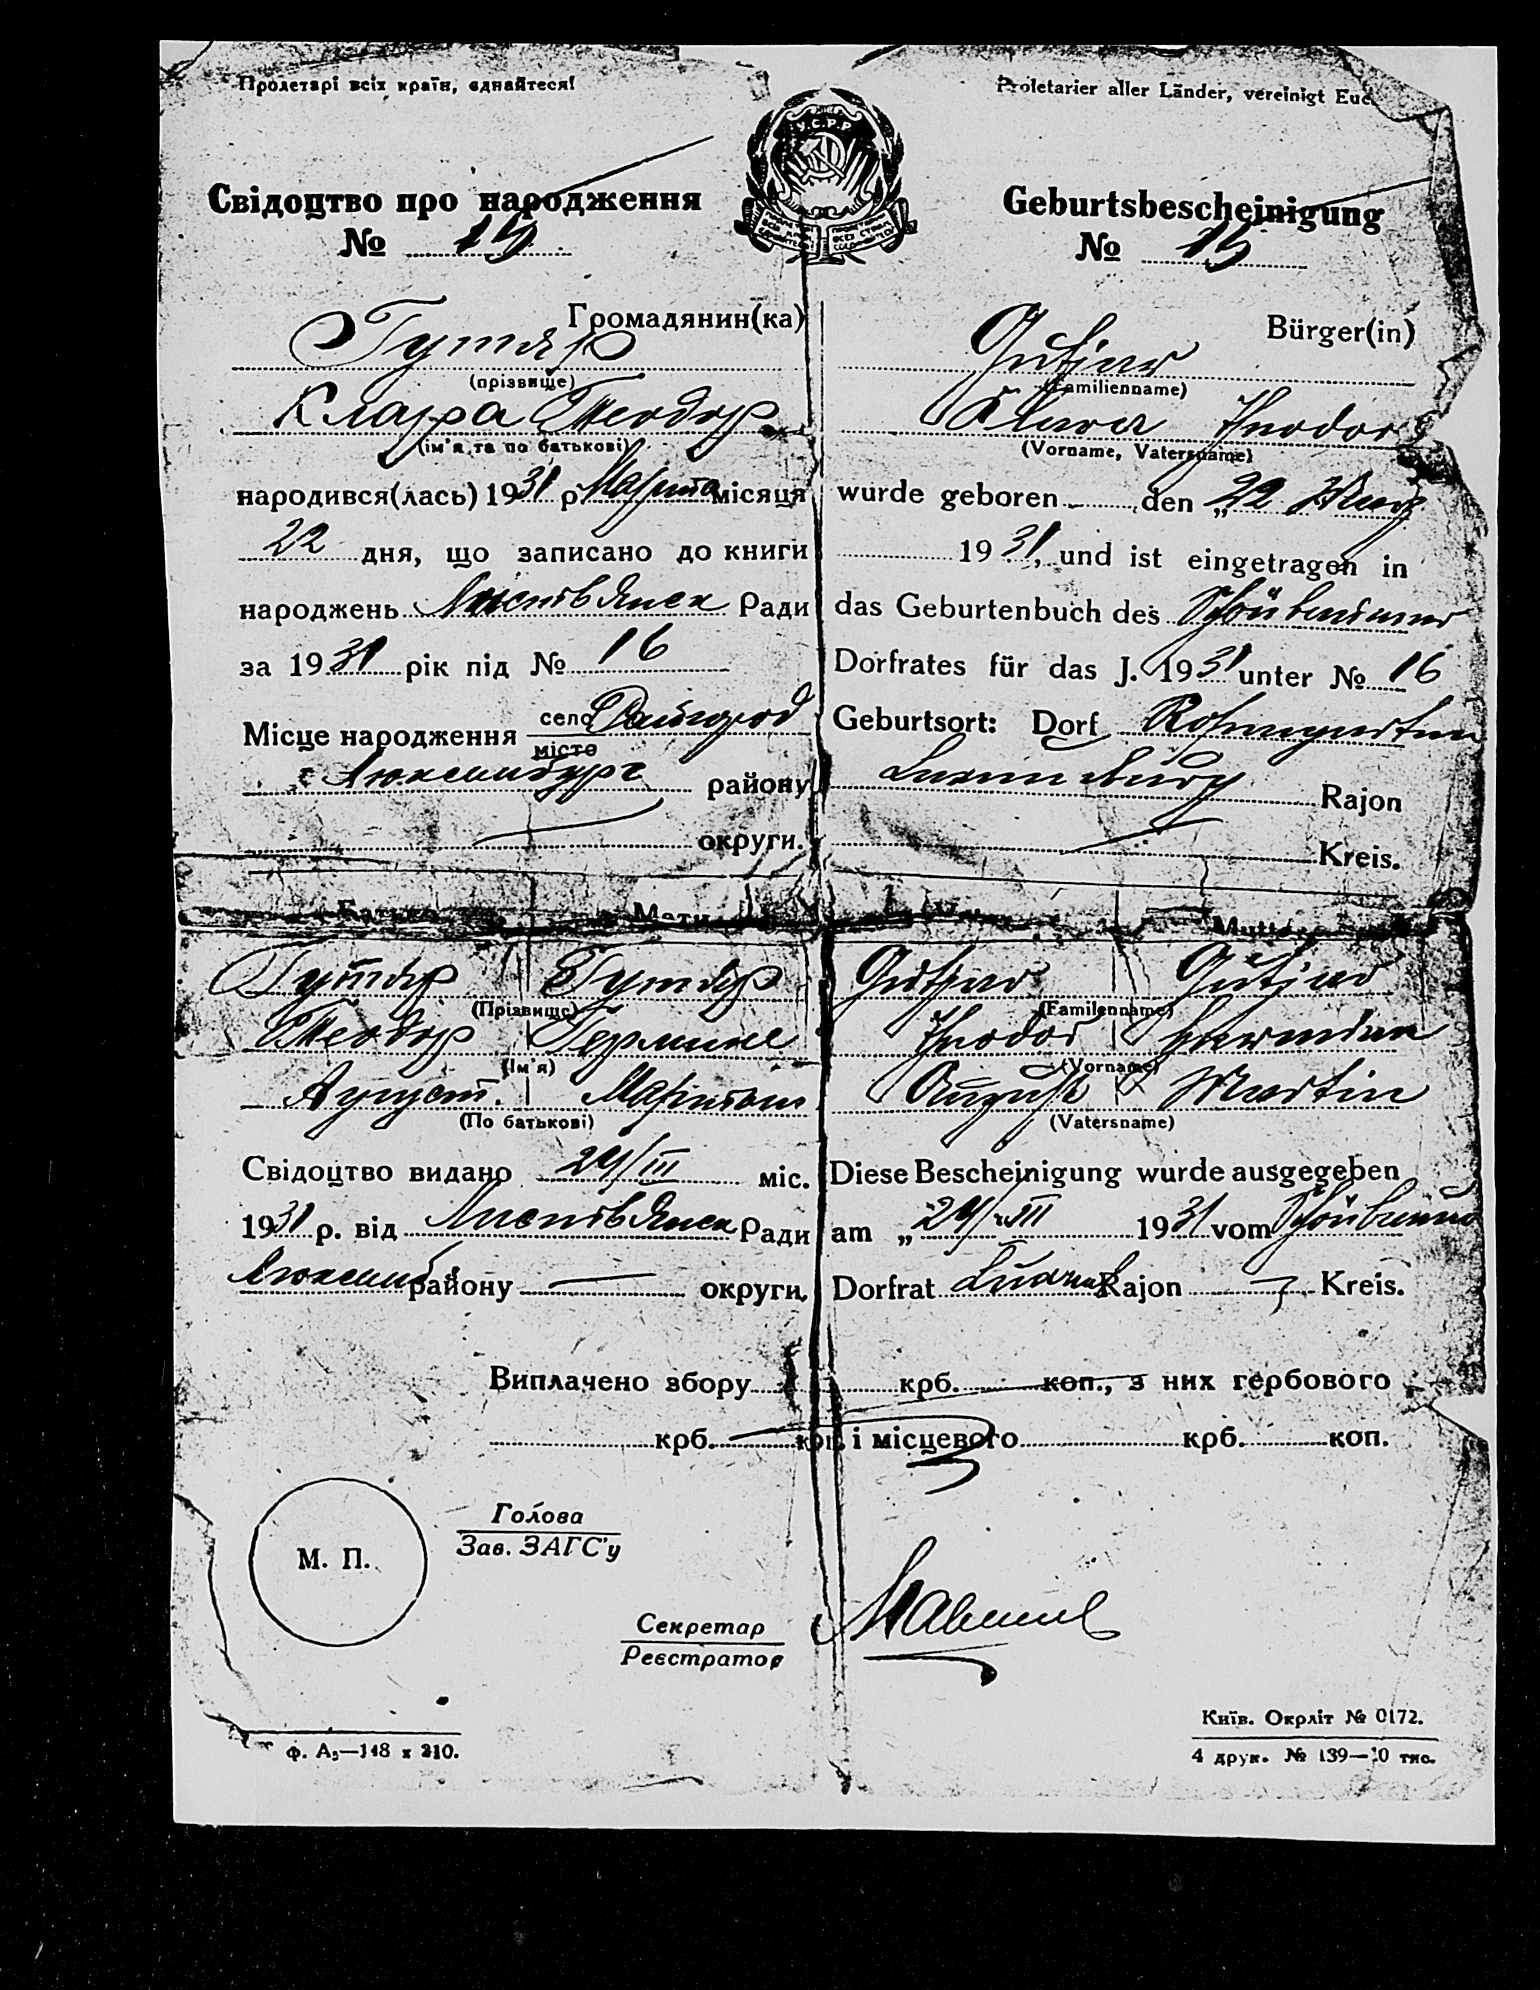 Пролетарі всіх країн, єднайтеся!
Proletarier aller Länder, vereinigt Euc
У.С.Р.Р
Свідоцтво про народження
№ 15
Громадянин(ка)
Гутяр
(прізвище)
Клара Теодор
(ім'я та по батькові)
народився(лась) 1931 р. Марта місяця
22 дня, що записано до книги
народжень Ради
за 1931 рік під № 16
Місце народження село Райгород
місто
Люксембург району
округи.
Geburtsbescheinigung
№ 15
Bürger(in)
Gutjar
(Familienname)
Klara Theodor
(Vorname, Vatersname)
wurde geboren den „22 März
1931, und ist eingetragen in
das Geburtenbuch des Schönbaumer
Dorfrates für das J. 1931 unter № 16
Geburtsort: Dorf
Luxemburg Rajon
Kreis.
Батько Мати
Гутяр Гутяр
(Прізвище)
Теодор Герміне
(Ім'я)
Август. Мартін
(По батькові)
Mutter
Gutjar Gutjar
(Familenname)
Theodor Hermine
(Vorname)
August Martin
(Vatersname)
Свідоцтво видано 24/III міс.
1931 р. від Ради
Люксемб району округи.
Diese Bescheinigung wurde ausgegeben
am „24/III 1931 vom Schönbaum
Dorfrat Luxemb Rajon Kreis.
Виплачено збору крб. коп., з них гербового
крб. коп. і місцевого крб. коп.
М. П.
Голова
Зав. ЗАГС'у
Секретар
Реєстратор
ф. А₅—148 x 210.
Київ. Окрліт № 0172.
4 друк. № 139—10 тис.